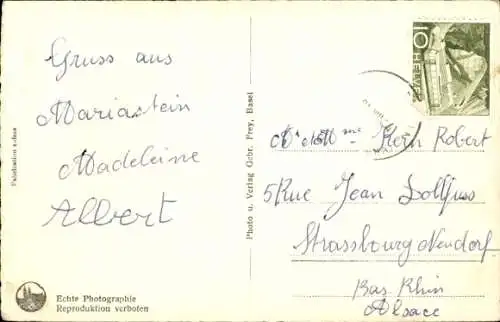 Gruss aus
Mariastein
Madeleine
Albert
Fabrication suisse
Echte Photographie
Reproduktion verboten
Photo u. Verlag Gebr. Frey, Basel
HELVETIA
10
M et Mme Kech Robert
5 Rue Jean Dollfuss
Strassbourg Neudorf
Bas Rhin
Alsace